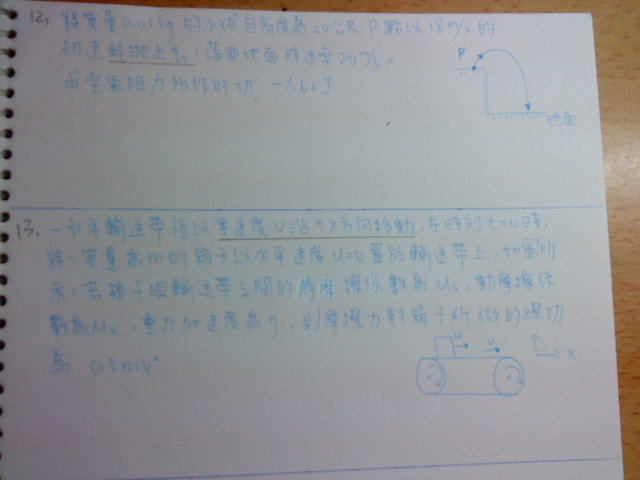 12, 將質量0.01kg的小球自高度為20公尺P點以18m/s的
初速斜拋出去,落回地面時速率20m/s。
求空氣阻力所作的功 -1.62J
P
地面
13、一水平輸送帶恆以等速度V沿+X方向移動,在時刻t=0時,
將一質量為m的箱子以水平速度u=0置於輸送帶上,如圖所
示,若箱子與輸送帶之間的靜摩擦係數為Ms,動摩擦係
數為Mk,重力加速度為g,則摩擦力對箱子所做的總功
為 0.5mv²
u
v
x